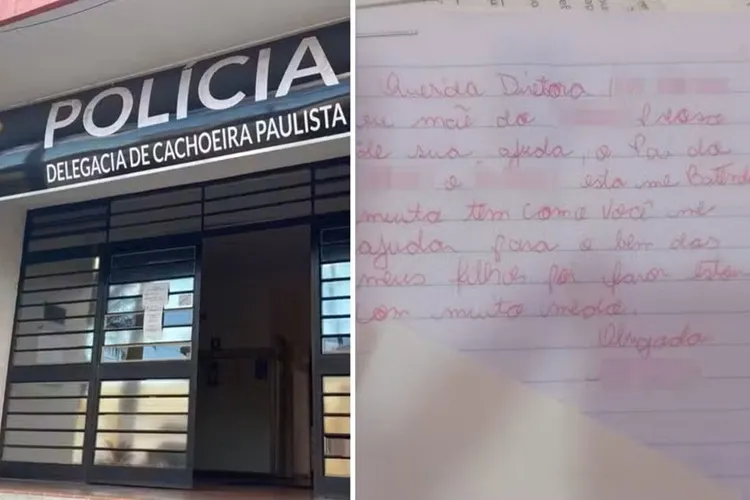 POLÍCIA
DELEGACIA DE CACHOEIRA PAULISTA
Querida Diretora
eu mãe do preciso
de sua ajuda, o Pai do
e esta me Batendo
muito tem como você me
ajudar para o bem dos
meus filhos por favor estou
com muito medo.
Obrigada